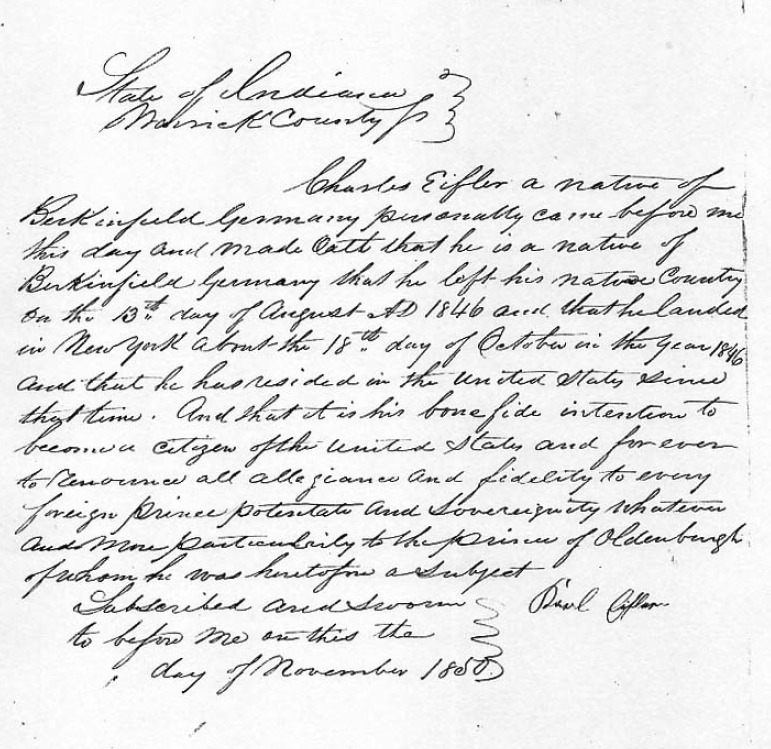 State of Indiana
Warrick County Ss
Charles Eifler a native of
Berkinfield Germany personally came before me
this day and made Oath that he is a native of
Berkinfield Germany that he left his native Country
on the 13th day of August AD 1846 and that he landed
in New York about the 18th day of October in the Year 1846
and that he has resided in the United States since
that time. And that it is his bona fide intention to
become a citizen of the United States and for ever
to Renounce all allegiance and fidelity to every
foreign Prince potentate and Sovereignity whatever
and More particularily to the prince of Oldenburgh
of whom he was heretofore a subject
Subscribed and Sworn Eifler
to before me on this the
day of November 1850